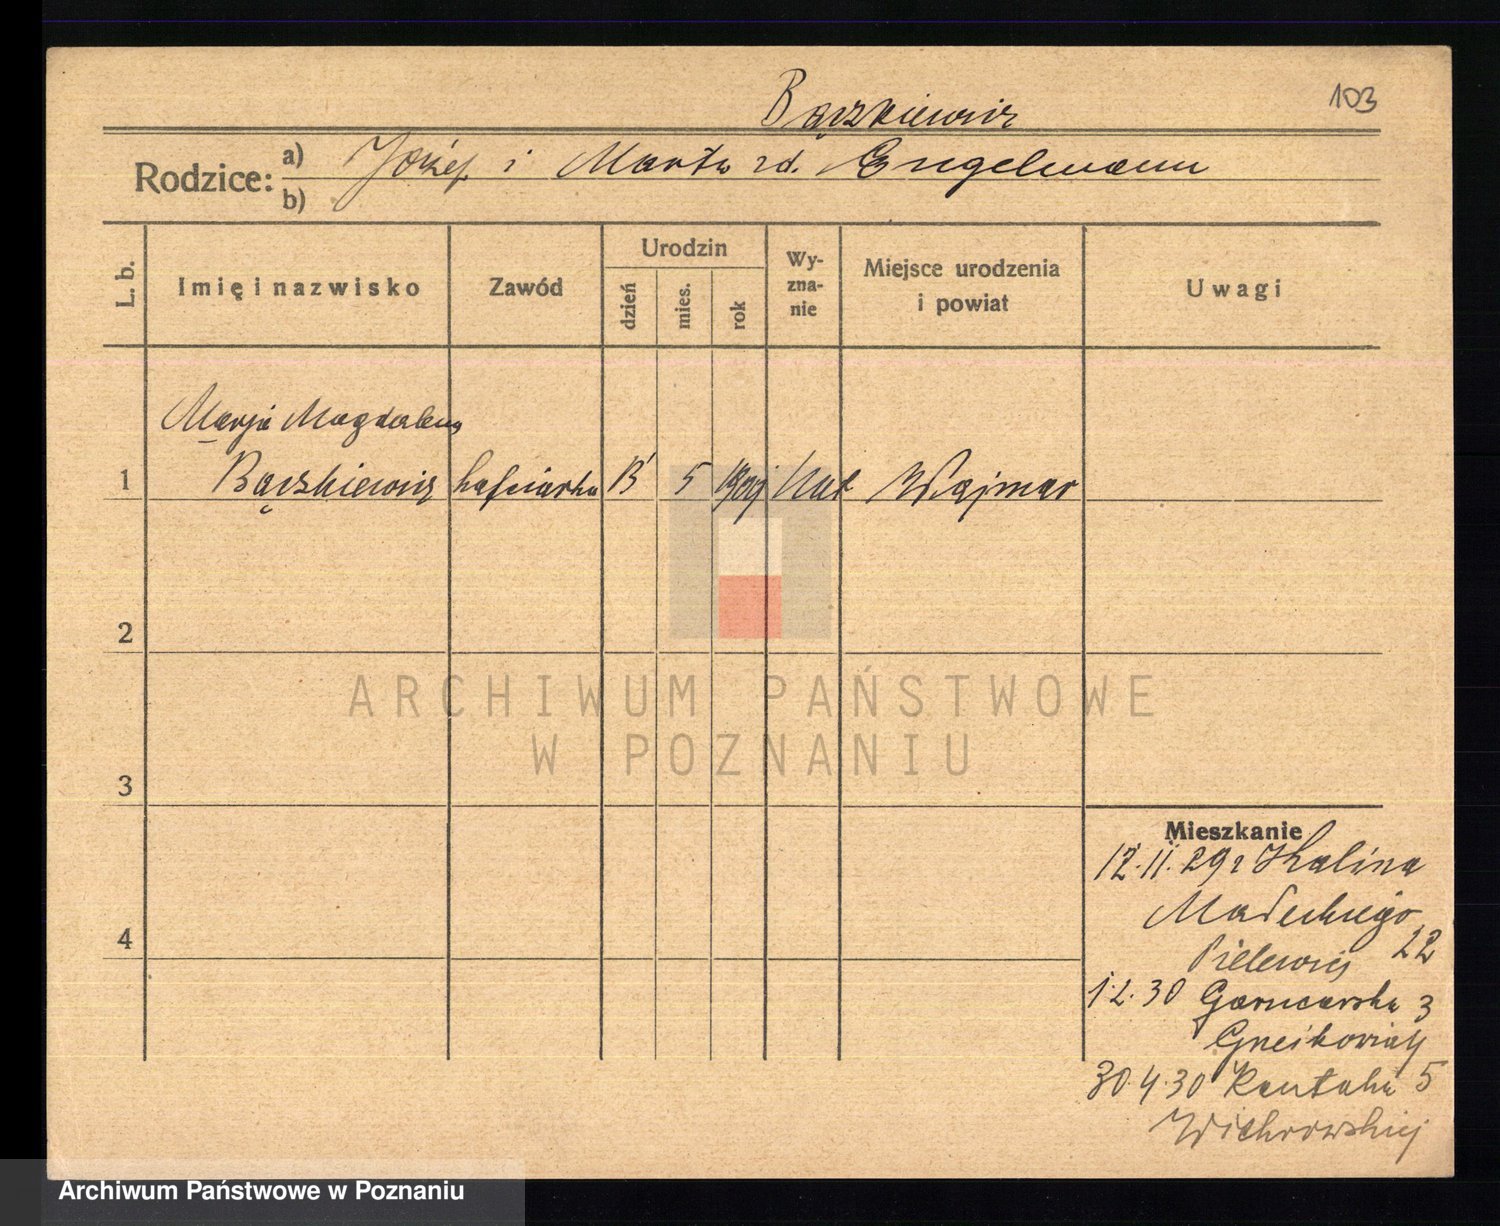 Bączkiewicz
103
Rodzice: a) Józef i Marta zd. Engelmann
b)
L. b.
Imię i nazwisko
Zawód
Urodzin
dzień
mies.
rok
Wy-
zna-
nie
Miejsce urodzenia
i powiat
Uwagi
Marja Magdalena
1 Bączkiewicz hafciarka 13 5 1909 kat Wajmar
2
3
4
ARCHIWUM PAŃSTWOWE
W POZNANIU
Mieszkanie
12.11.29r Kalina
Małeckiego
22
1.2.30 Garncarska 3
30.4.30 Kantaka 5
Wichrowskiej
Archiwum Państwowe w Poznaniu